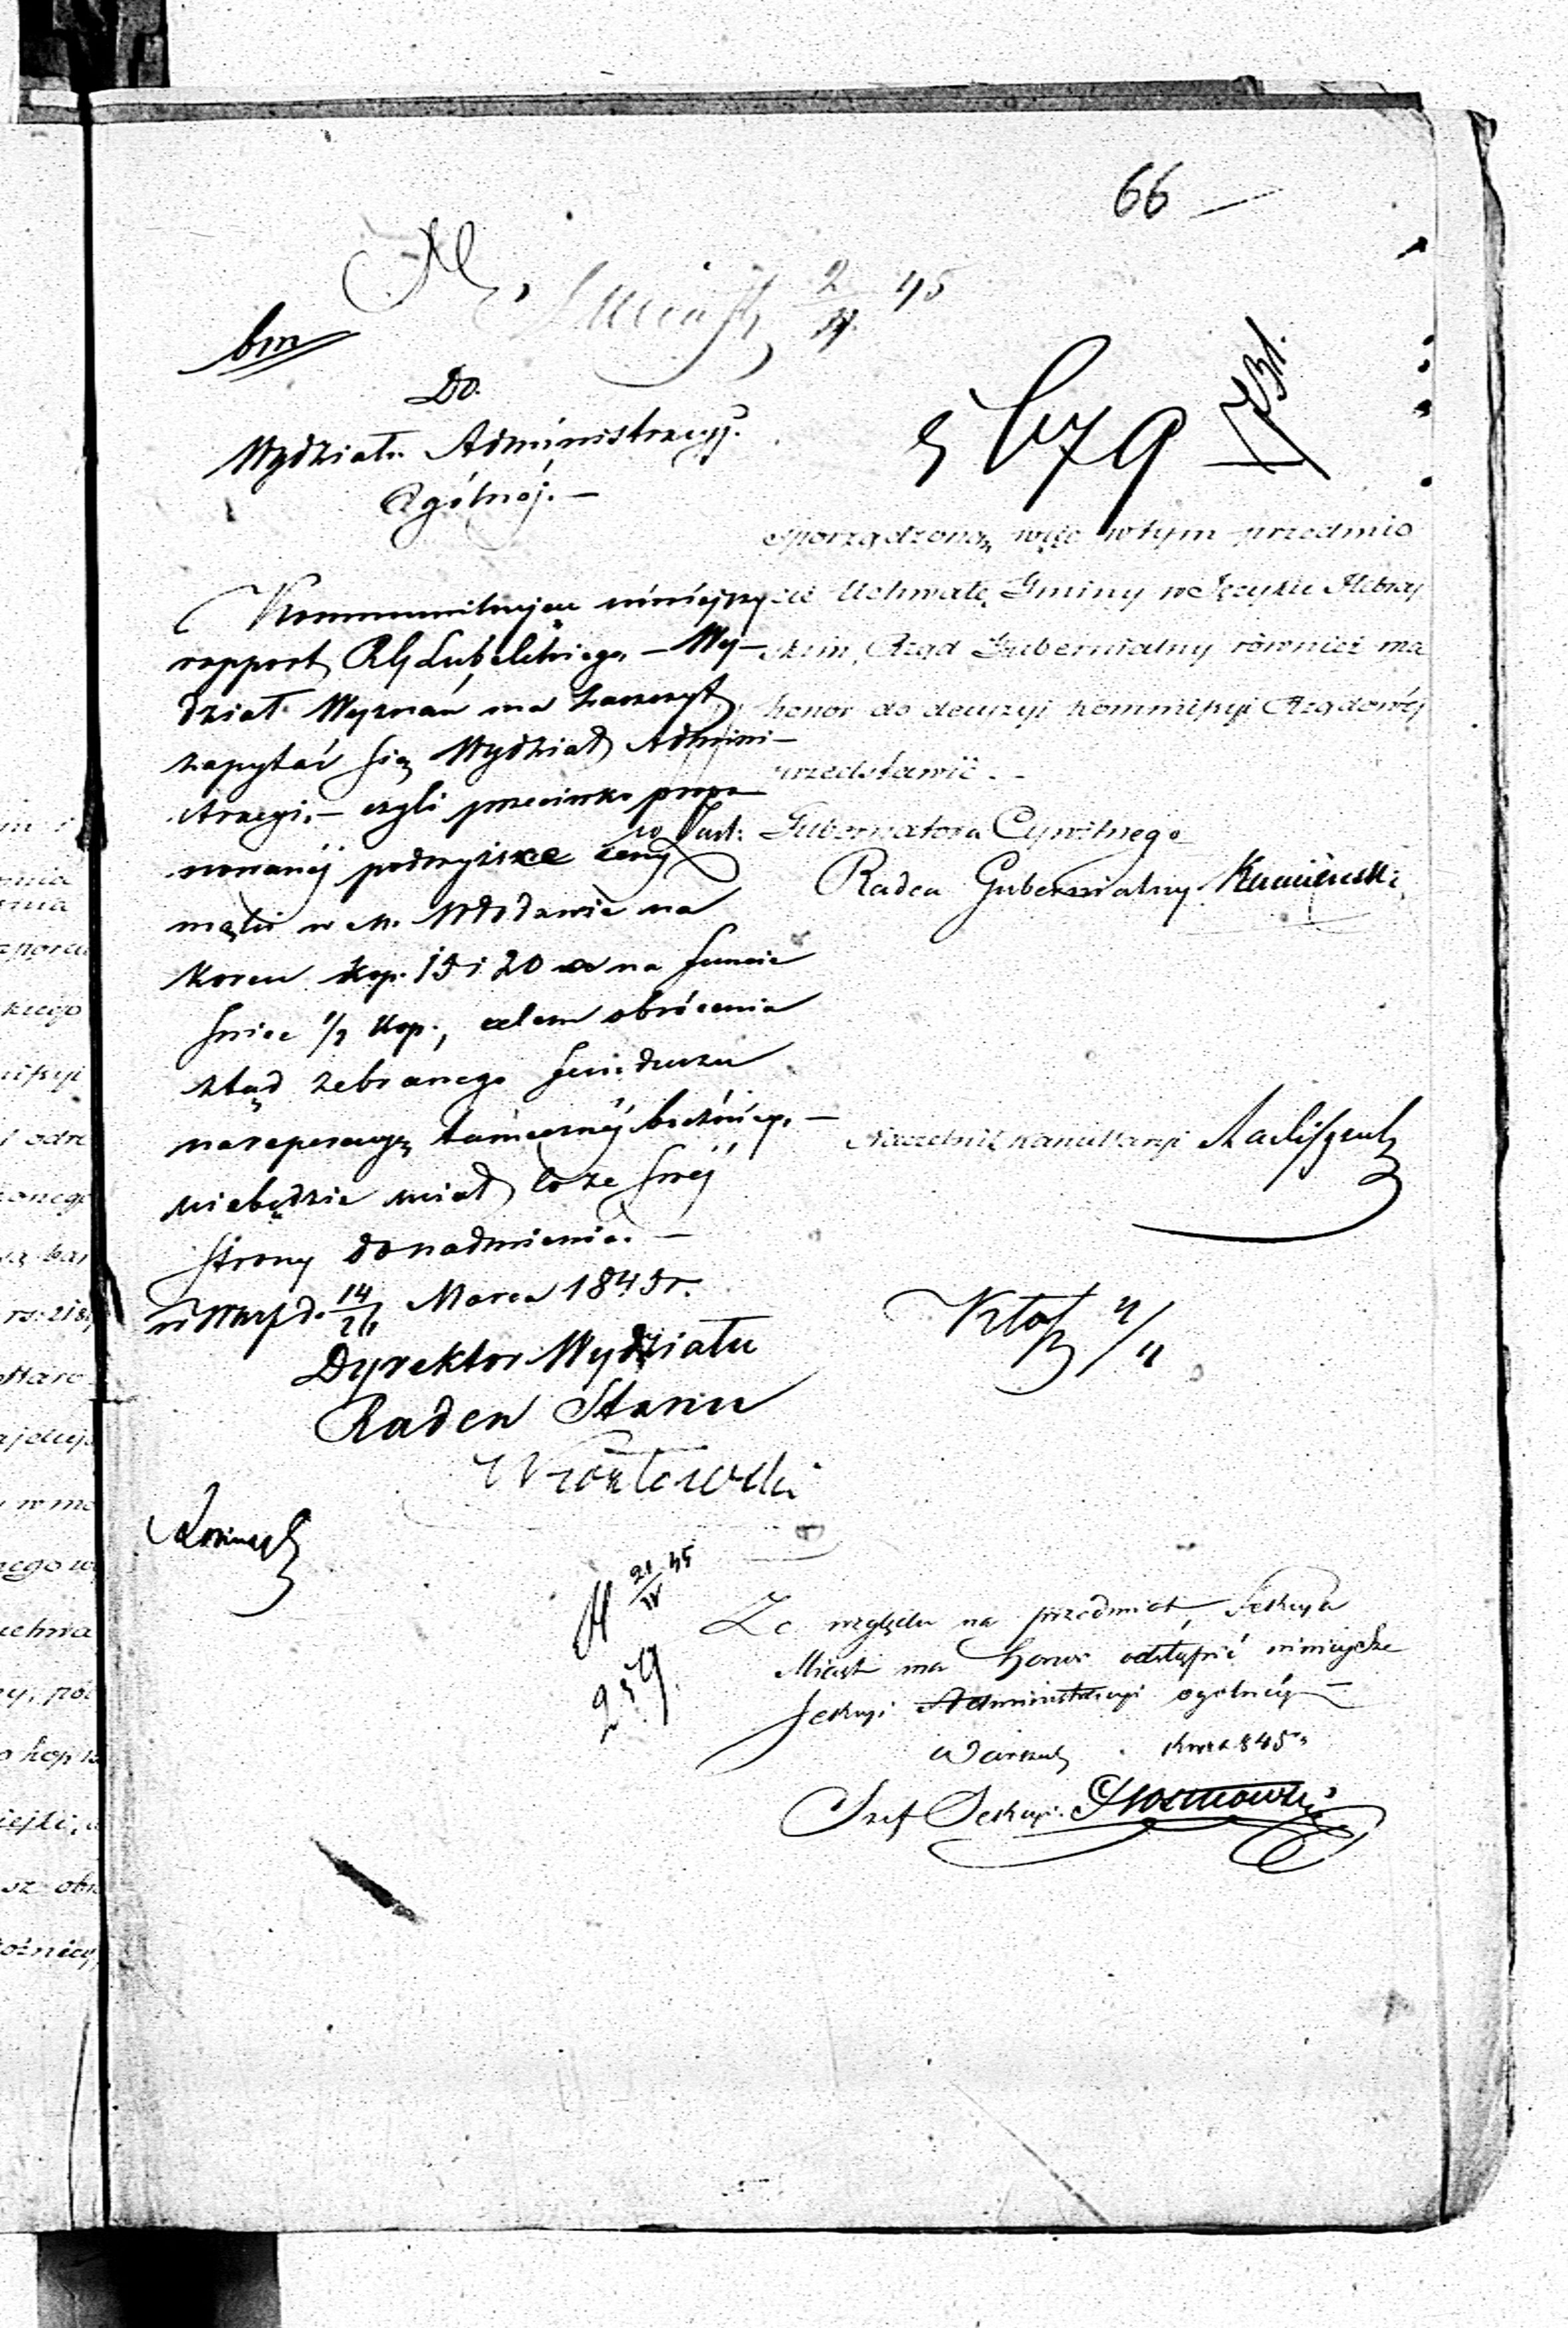 66
2/IV 45
bm
Do
Wydziału Administracyj.
Ogólnej. —
5679
Kommunikując niniejszy
rapport RG Lubelskiego, — Wy-
dział Wyznań ma zaszczyt
zapytać się Wydział Admini-
stracyi, — czyli przeciwko propo
nowanéj podwyżce ceny
mąki w M. Włodawie na
korcu kop. 15 i 20 a na funcie
świec 1/2 kop., celem obrócenia
ztąd zebranego funduszu
na reperacyą tamecznéj bożnicy, —
niebędzie miał co ze swéj
strony do nadmienienia. —
w Warsz. d. 14/26 Marca 1845 r.
Dyrektor Wydziału
Radca Stanu
sporządzoną więc w tym przedmio
cie Uchwałę Gminy w Języku Hebraj
skim, Rząd Gubernialny również ma
honor do decyzyi Kommissyi Rządowéj
przedstawić. —
w Zast. Gubernatora Cywilnego
Radca Gubernialny
Naczelnik Kancellaryi
21/IV 45
259
Ze względu na przedmiot, Sekcya
Miast ma honor odstąpić niniejsze
Sekcyi Administracyi ogólnéj —
Warszawa Kwiet. 845 r.
Szef Sekcyi